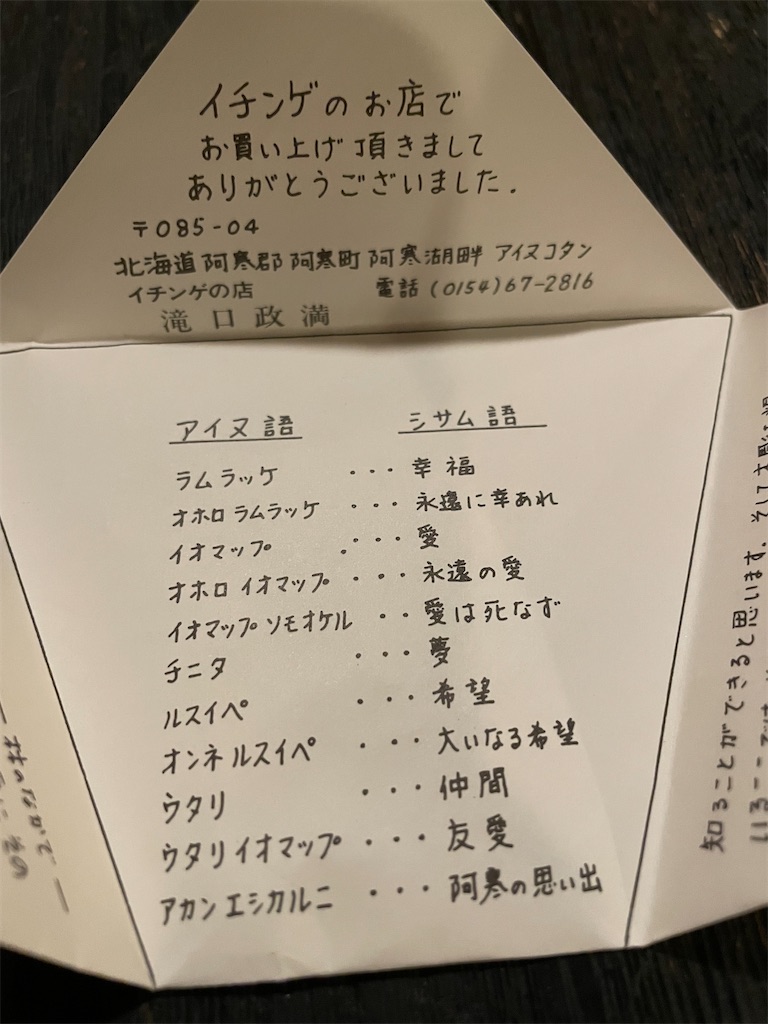 イチンゲのお店で
お買い上げ頂きまして
ありがとうございました.
〒085-04
北海道阿寒郡阿寒町阿寒湖畔 アイヌコタン
イチンゲの店 電話(0154)67-2816
滝口政満
アイヌ語 シサム語
ラムラッケ ・・・幸福
オホロラムラッケ ・・・永遠に幸あれ
イオマップ ・・・愛
オホロイオマップ ・・・永遠の愛
イオマップソモオケル ・・愛は死なず
チニタ ・・・夢
ルスイペ ・・・希望
オンネルスイペ ・・・大いなる希望
ウタリ ・・・仲間
ウタリイオマップ ・・・友愛
アカンエシカルニ ・・・阿寒の思い出
知ることができると思います。そして